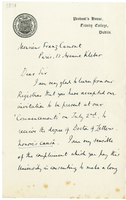 Provost's House,
Trinity College,
Dublin
Monsieur Franz Cumont
Paris: 11 Avenue Kléber
Dear Sir
I am very glad to learn from our
Registrar that you have accepted our
invitation to be present at our
"Commencements" on July 2nd, to
receive the degree of Doctor of Letters
honoris causa. I am very sensible
of the compliment which you pay this
University in consenting to make a long